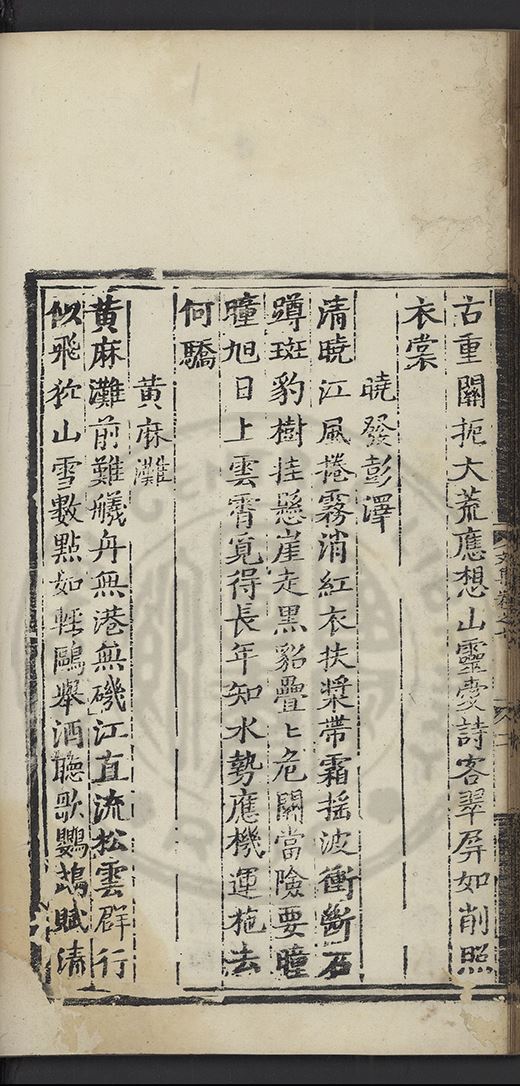 古重關扼大荒應想山靈愛詩客翠屏如削照
衣裳
曉發彭澤
清曉江風捲霧消紅衣扶槳帶霜摇波衝斷石
蹲斑豹樹挂懸崖走黑貂疊〻危關當險要曈
曈旭日上雲霄覓得長年知水勢應機運柂去
何驕
黃麻灘
黃麻灘前難艤舟無港無磯江直流松雲群行
似飛狖山雪數點如輕鷗舉酒聽歌鸚鵡賦清